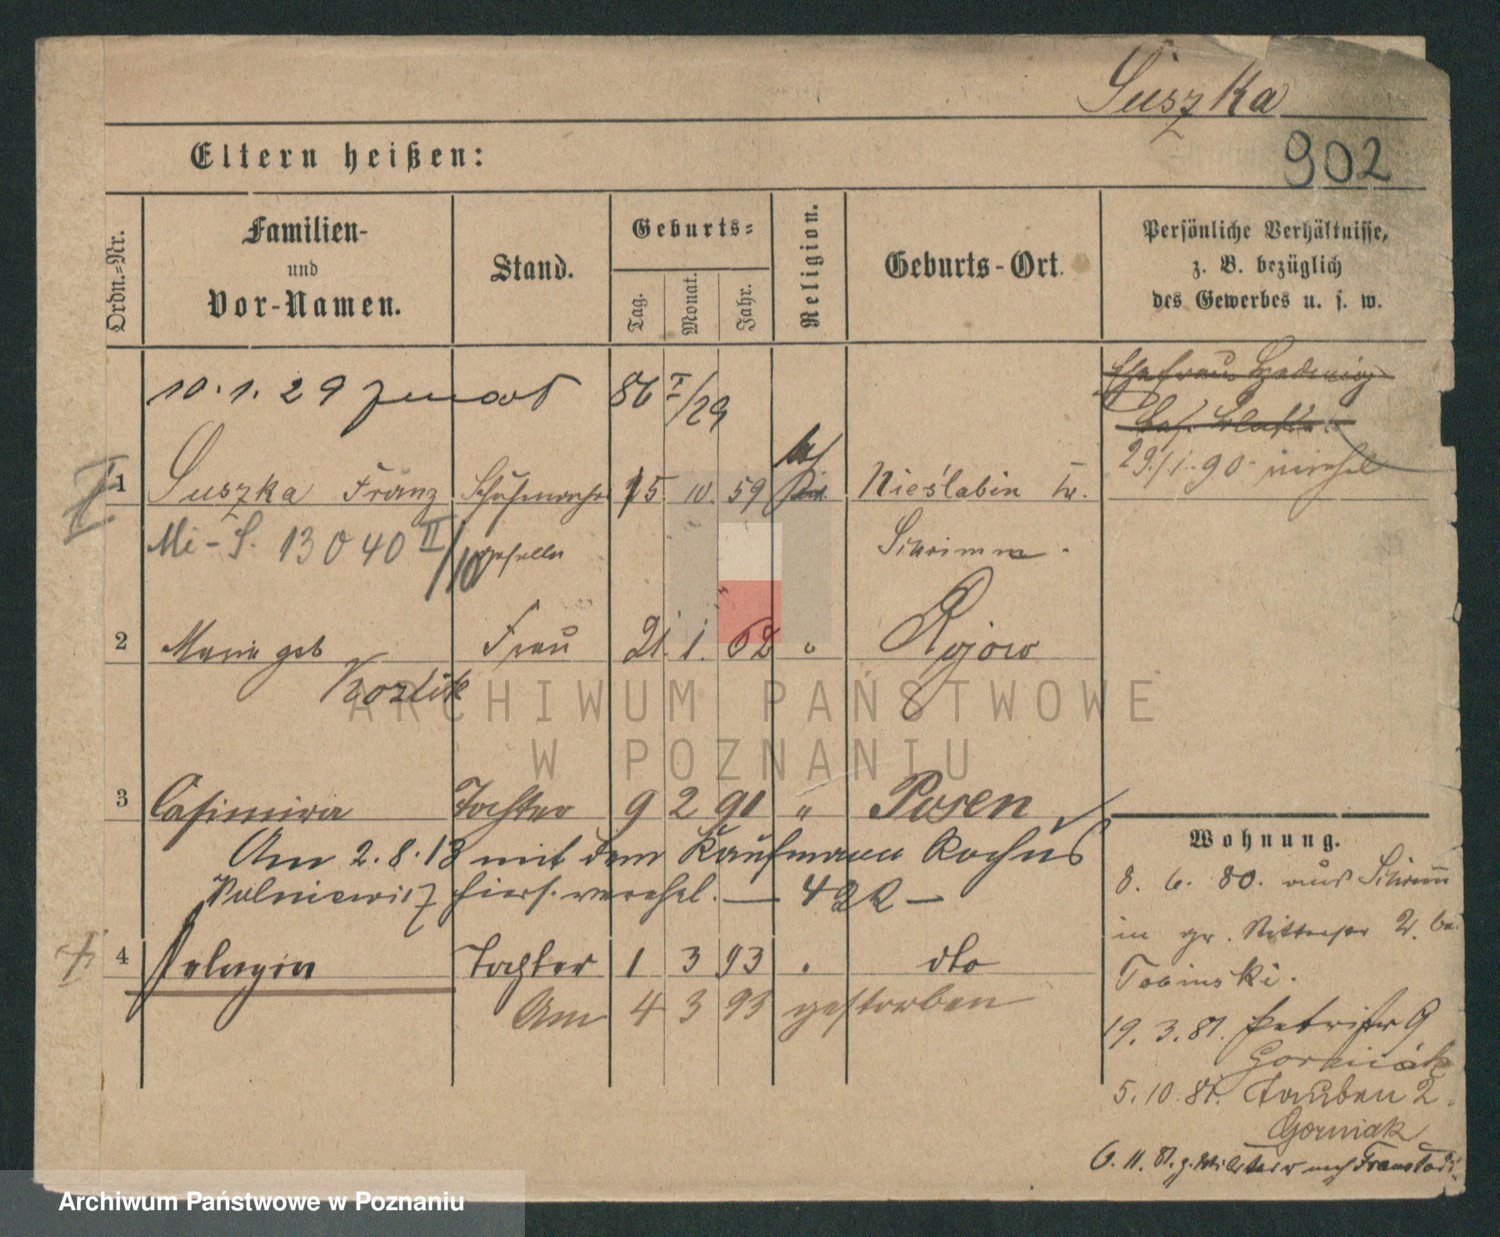 Suszka
902
Eltern heißen:
Ordn.=Nr.
Familien-
und
Vor-Namen.
Stand.
Geburts=
Tag.
Monat.
Jahr.
Religion.
Geburts-Ort.
Persönliche Verhältnisse,
z. B. bezüglich
des Gewerbes u. s. w.
10.1.29 86 I/29
Ehefrau Hedwig
29./1.90
1 Suszka Franz 15. 10. 59 Nieslabin
Mi-S. 13040 II/10 geselle Schrimm.
2 Marie geb Frau 21. 1. 62 " Kozlik
Rojow
3 Casimira Tochter 9 2 91 " Posen
Am 2.8.13 mit dem Kaufmann Rochus
Wolniewicz hiers. verehel. —
4 Pelagia Tochter 1 3 93 dto
Am 4 3 93 gestorben
Wohnung.
8. 6. 80. aus Schrimm
in gr. Ritterstr 2. bei
19. 3. 81. Petristr 9
Gorniak
5. 10. 81. Tauben 2.
Gorniak
6. 11. 81. z. Militair nach Fraustadt
ARCHIWUM PAŃSTWOWE
W POZNANIU
Archiwum Państwowe w Poznaniu